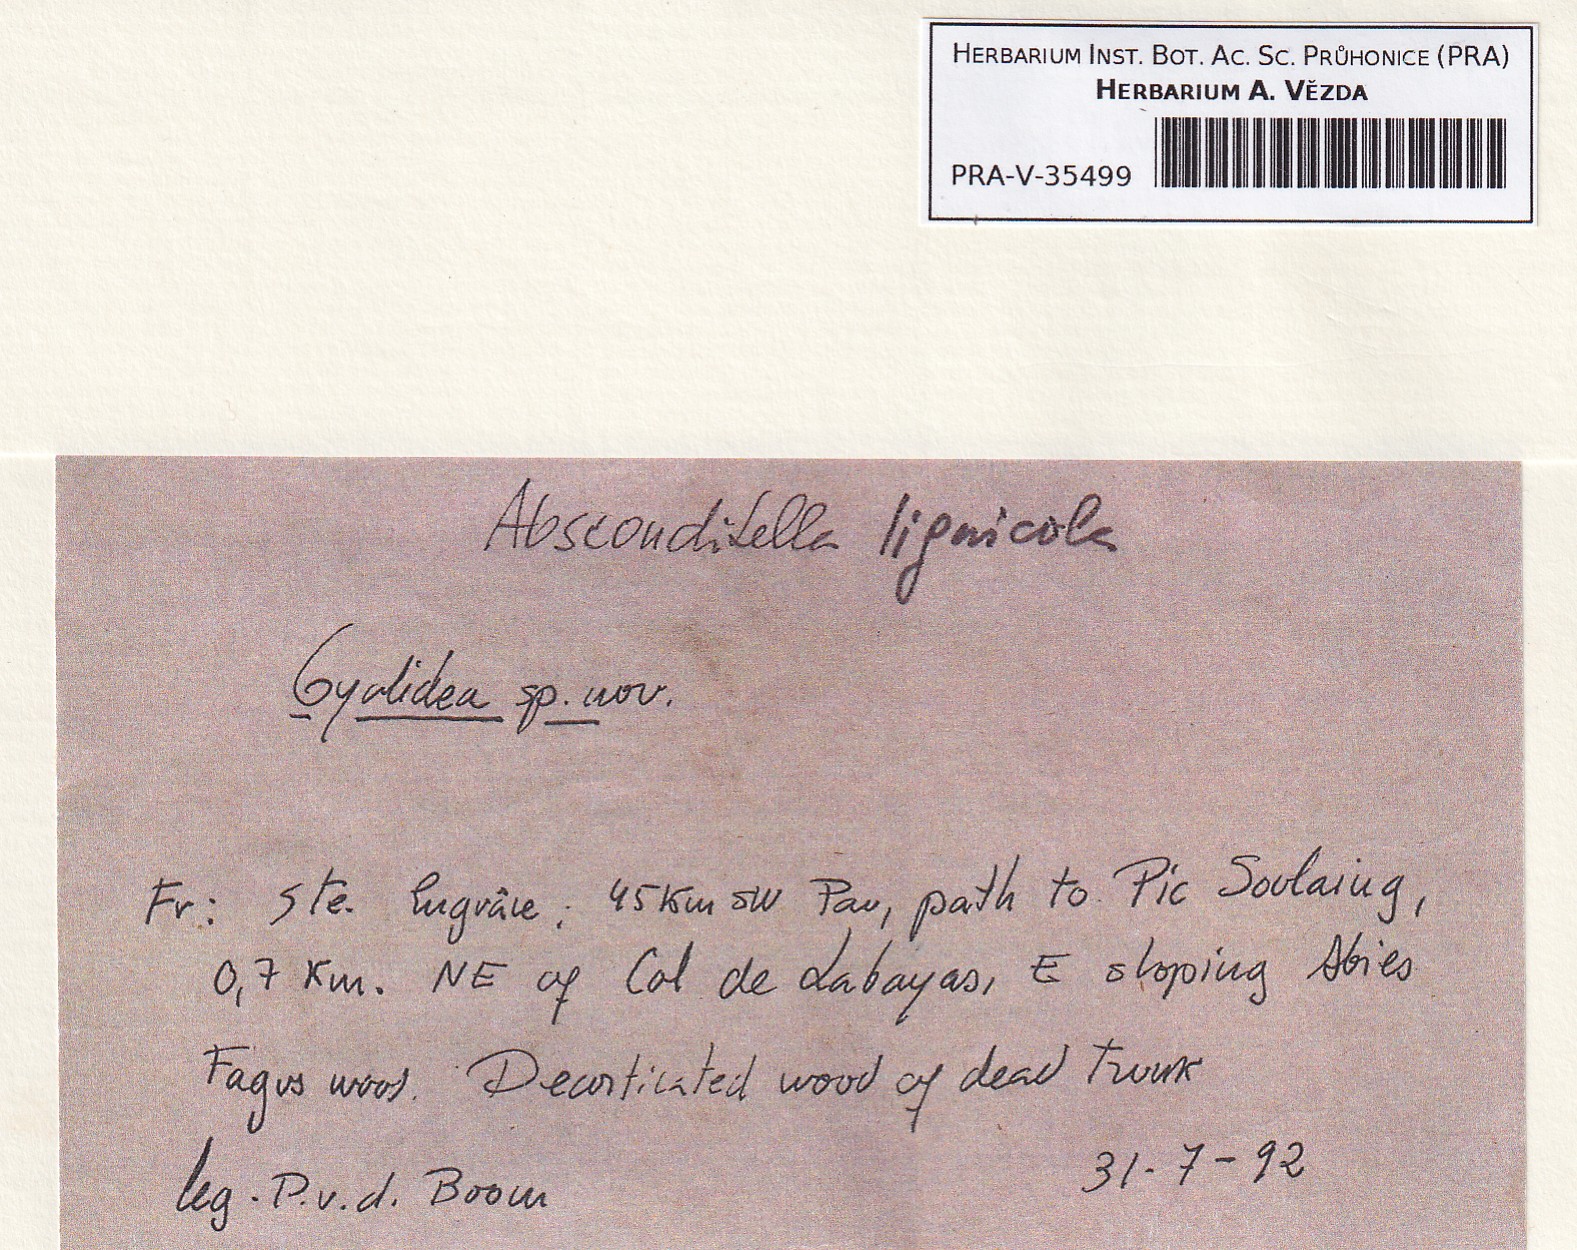 HERBARIUM INST. BOT. AC. SC. PRŮHONICE (PRA)
HERBARIUM A. VĚZDA
PRA-V-35499
Absconditella lignicola
Gyalidea sp. nov.
Fr: Ste. Engrâce; 45 Km SW Pau, path to Pic Soulaing,
0,7 Km. NE of Col de Labayas, E sloping Abies
Fagus wood. Decorticated wood of dead trunk
leg. P.v.d. Boom
31-7-92